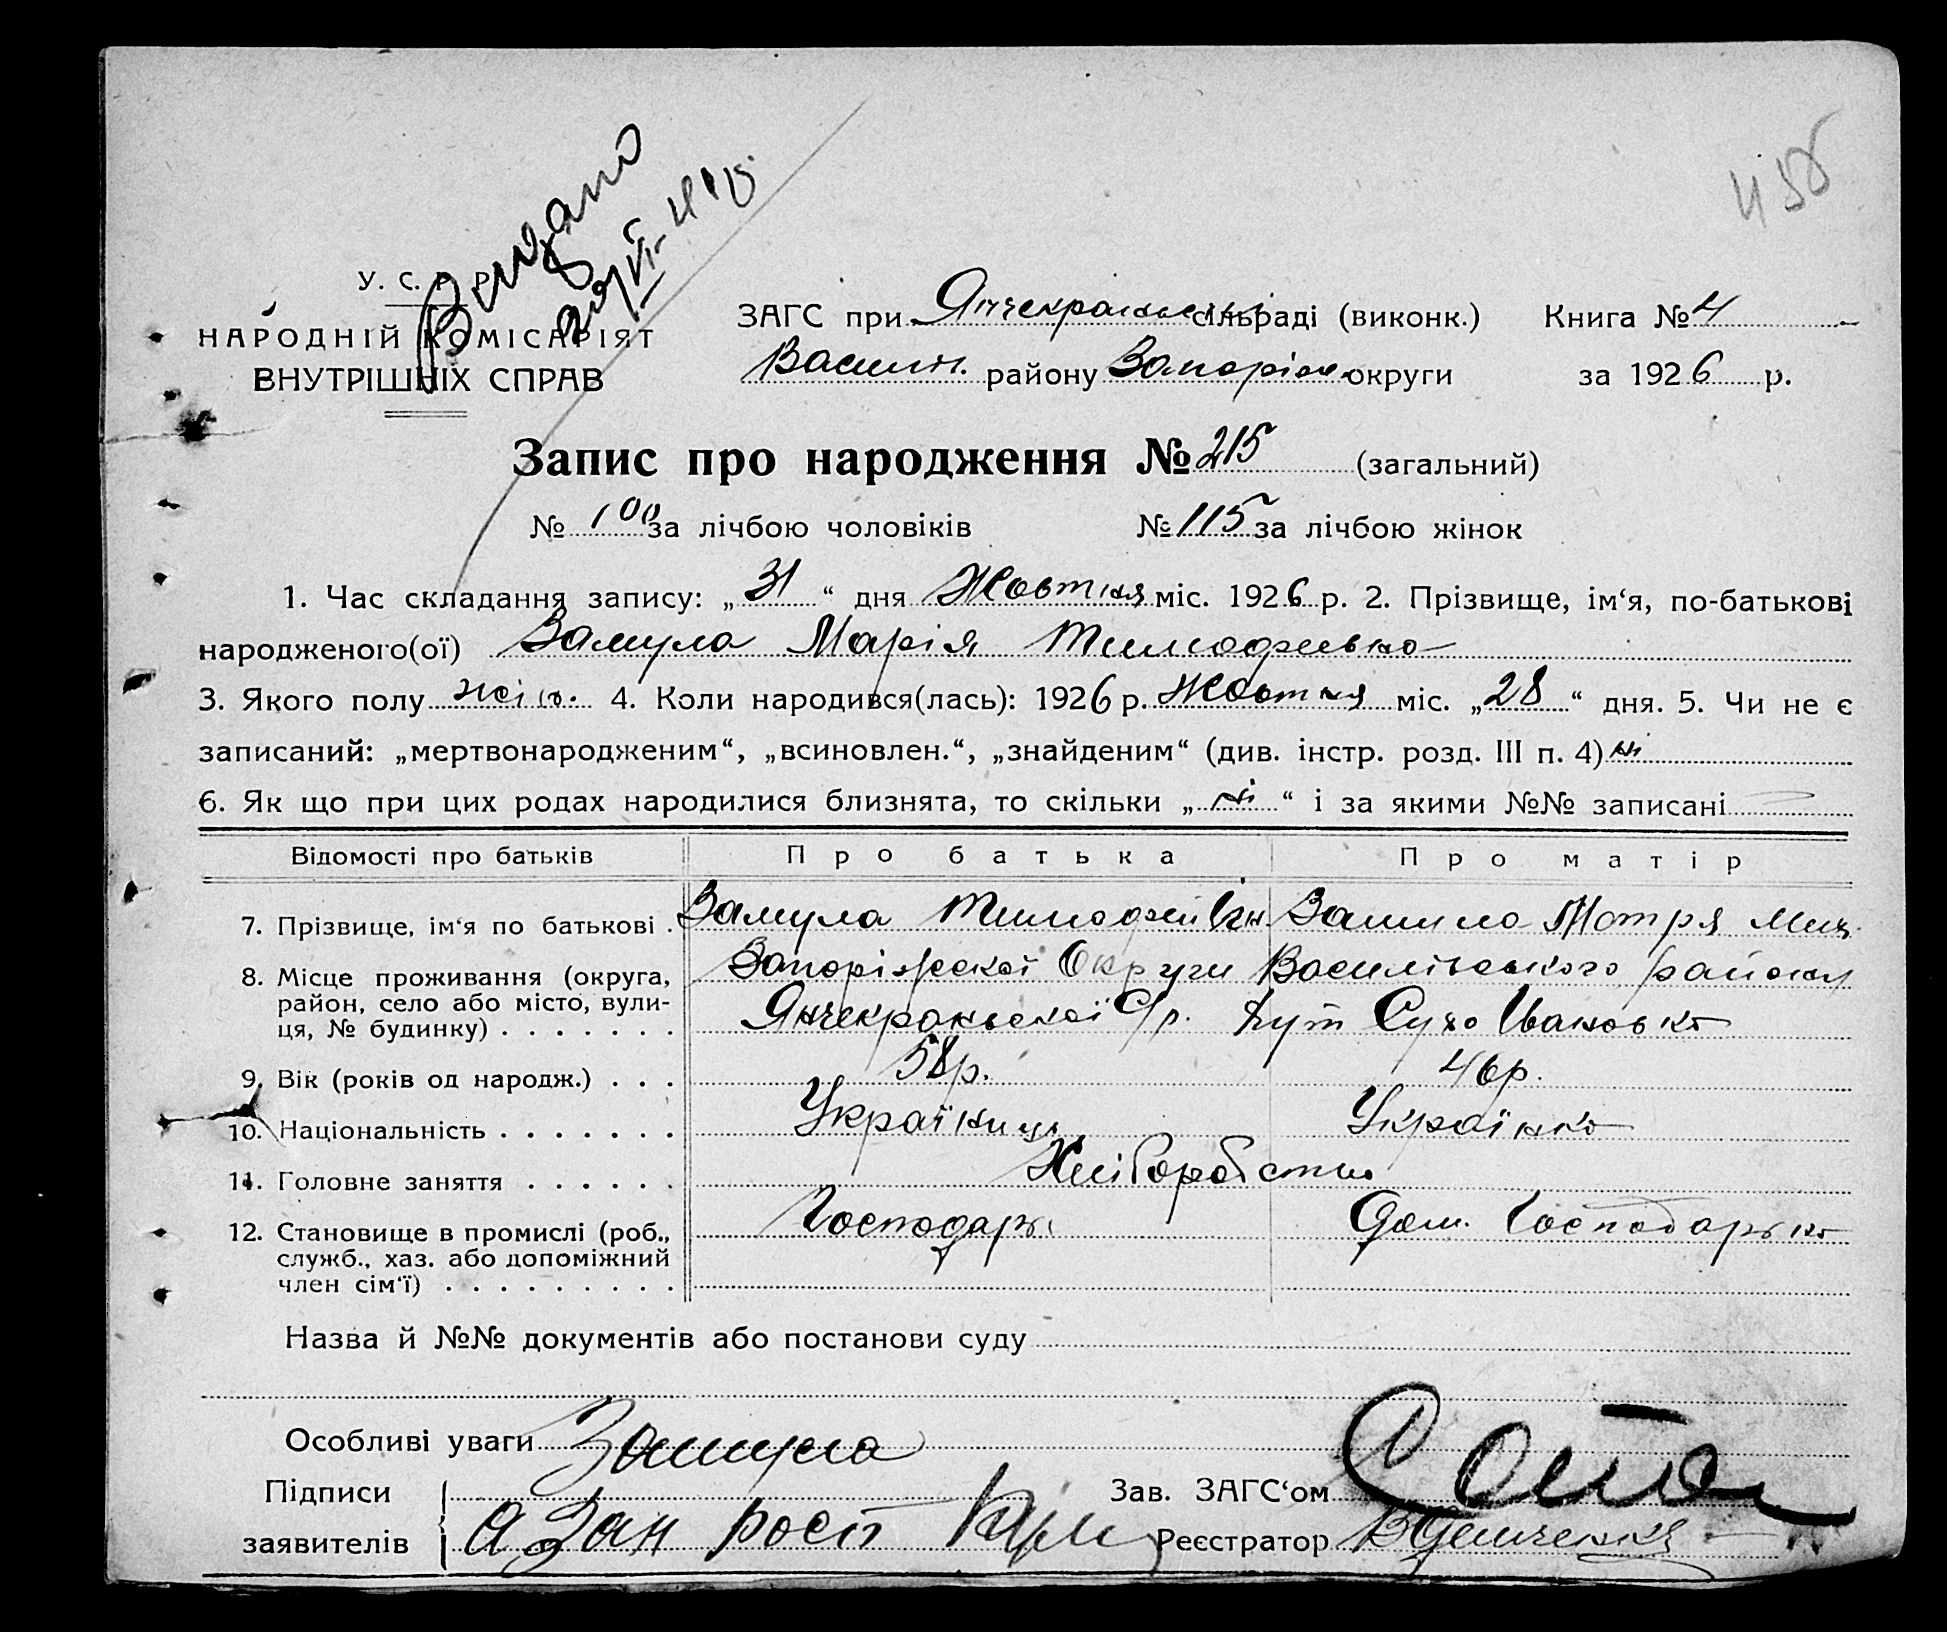 458
Видано
У. С. Р. Р.
НАРОДНІЙ КОМІСАРІЯТ
ВНУТРІШНІХ СПРАВ
ЗАГС при Янчекракській сільраді (виконк.) Книга № 4
Василів. району Запоріж. округи за 1926 р.
Запис про народження № 215 (загальний)
№ 100 за лічбою чоловіків № 115 за лічбою жінок
1. Час складання запису: „31“ дня Жовтня міс. 1926 р. 2. Прізвище, ім‘я, по-батькові
народженого(ої) Замула Марія Тимофеївна
3. Якого полу жін. 4. Коли народився(лась): 1926 р. Жовтня міс. „28“ дня. 5. Чи не є
записаний: „мертвонародженим“, „всиновлен.“, „знайденим“ (див. інстр. розд. III п. 4) ні
6. Як що при цих родах народилися близнята, то скільки „ні“ і за якими №№ записані
Відомості про батьків Про батька Про матір
7. Прізвище, ім‘я по батькові . Замула Тимофей Ів. Замула Мотря
8. Місце проживання (округа, Запоріжської Округи Василівського району
район, село або місто, вули- Янчекракської С/р. Хут Сухо Івановка
ця, № будинку) . . . . . . .
9. Вік (років од народж.) . . . 58р. 46р.
10. Національність . . . . . . . Українець Українка
11. Головне заняття . . . . . . Хліборобство
12. Становище в промислі (роб., Господарь Дом. Господарька
служб., хаз. або допоміжний
член сім‘ї) . . . . . . . . .
Назва й №№ документів або постанови суду
Особливі уваги Замула
Підписи Зав. ЗАГС‘ом
заявителів а зан рост Реєстратор